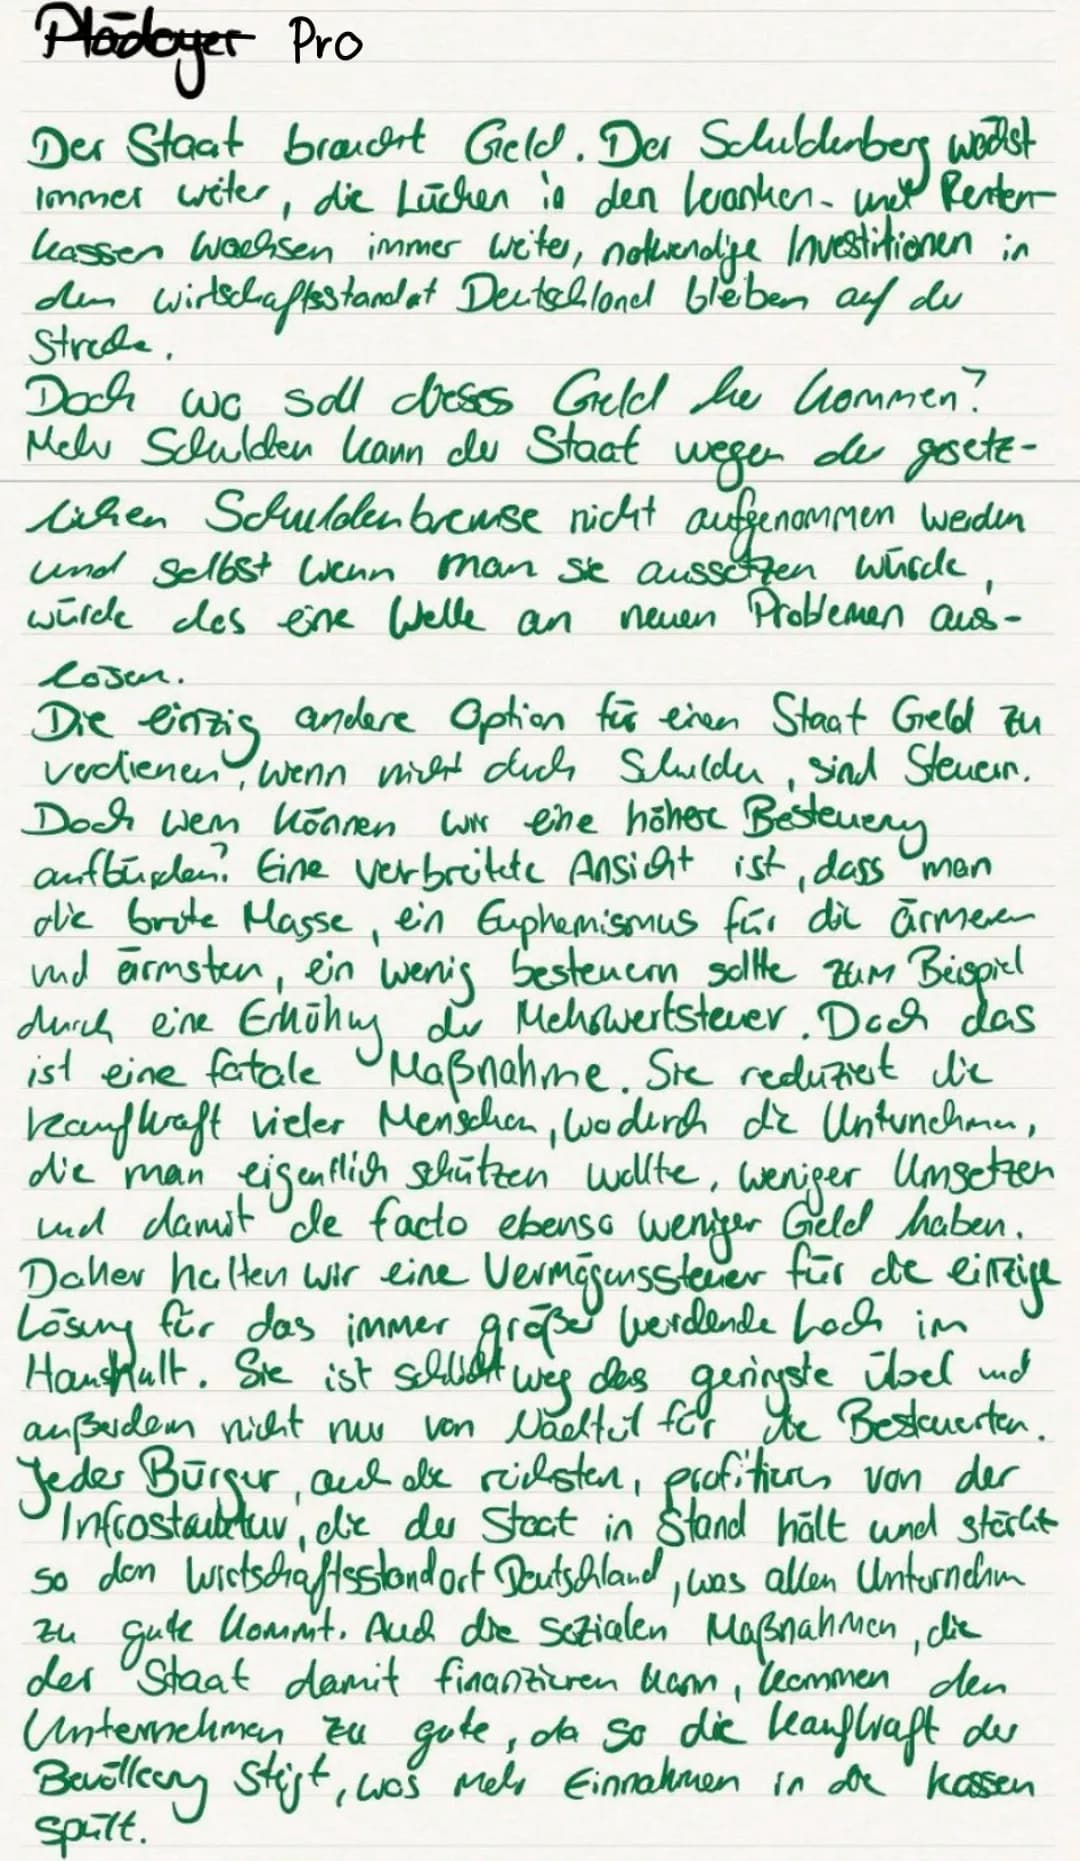 Plädoyer Pro
Der Staat braucht Geld. Der Schuldenberg wächst
immer weiter, die Lücken in den kranken- und Renten-
kassen wachsen immer weiter, notwendige Investitionen in
den wirtschaftsstandort Deutschland bleiben auf der
Strecke.
Doch wo soll dieses Geld her kommen?
Mehr Schulden kann der Staat wegen der gesetz-
lichen Schuldenbremse nicht aufgenommen werden
und selbst wenn man sie aussetzen würde,
würde das eine Welle an neuen Problemen aus-
lösen.
Die einzig andere Option für einen Staat Geld zu
verdienen, wenn nicht durch Schulden, sind Steuern.
Doch wem können wir eine höhere Besteuerung
aufbürden? Eine verbreitete Ansicht ist, dass man
die breite Masse, ein Euphemismus für die ärmeren
und ärmsten, ein wenig besteuern sollte zum Beispiel
durch eine Erhöhung der Mehrwertsteuer. Doch das
ist eine fatale Maßnahme. Sie reduziert die
Kaufkraft vieler Menschen, wodurch die Unternehmen,
die man eigentlich schützen wollte, weniger Umsetzen
und damit de facto ebenso weniger Geld haben.
Daher halten wir eine Vermögenssteuer für die einzige
Lösung für das immer größer werdende Loch im
Haushalt. Sie ist schlicht weg das geringste übel und
außerdem nicht nur von Nachteil für die Besteuerten.
Jeder Bürger, auch die reichsten, profitieren von der
Infrastruktur, die der Staat in Stand hält und stärkt
so den Wirtschaftsstandort Deutschland, was allen Unternehmen
zu gute kommt. Auch die sozialen Maßnahmen, die
der Staat damit finanzieren kann, kommen den
Unternehmen zu gute, da so die kaufkraft der
Bevölkerung steigt, was mehr Einnahmen in die kassen
spült.